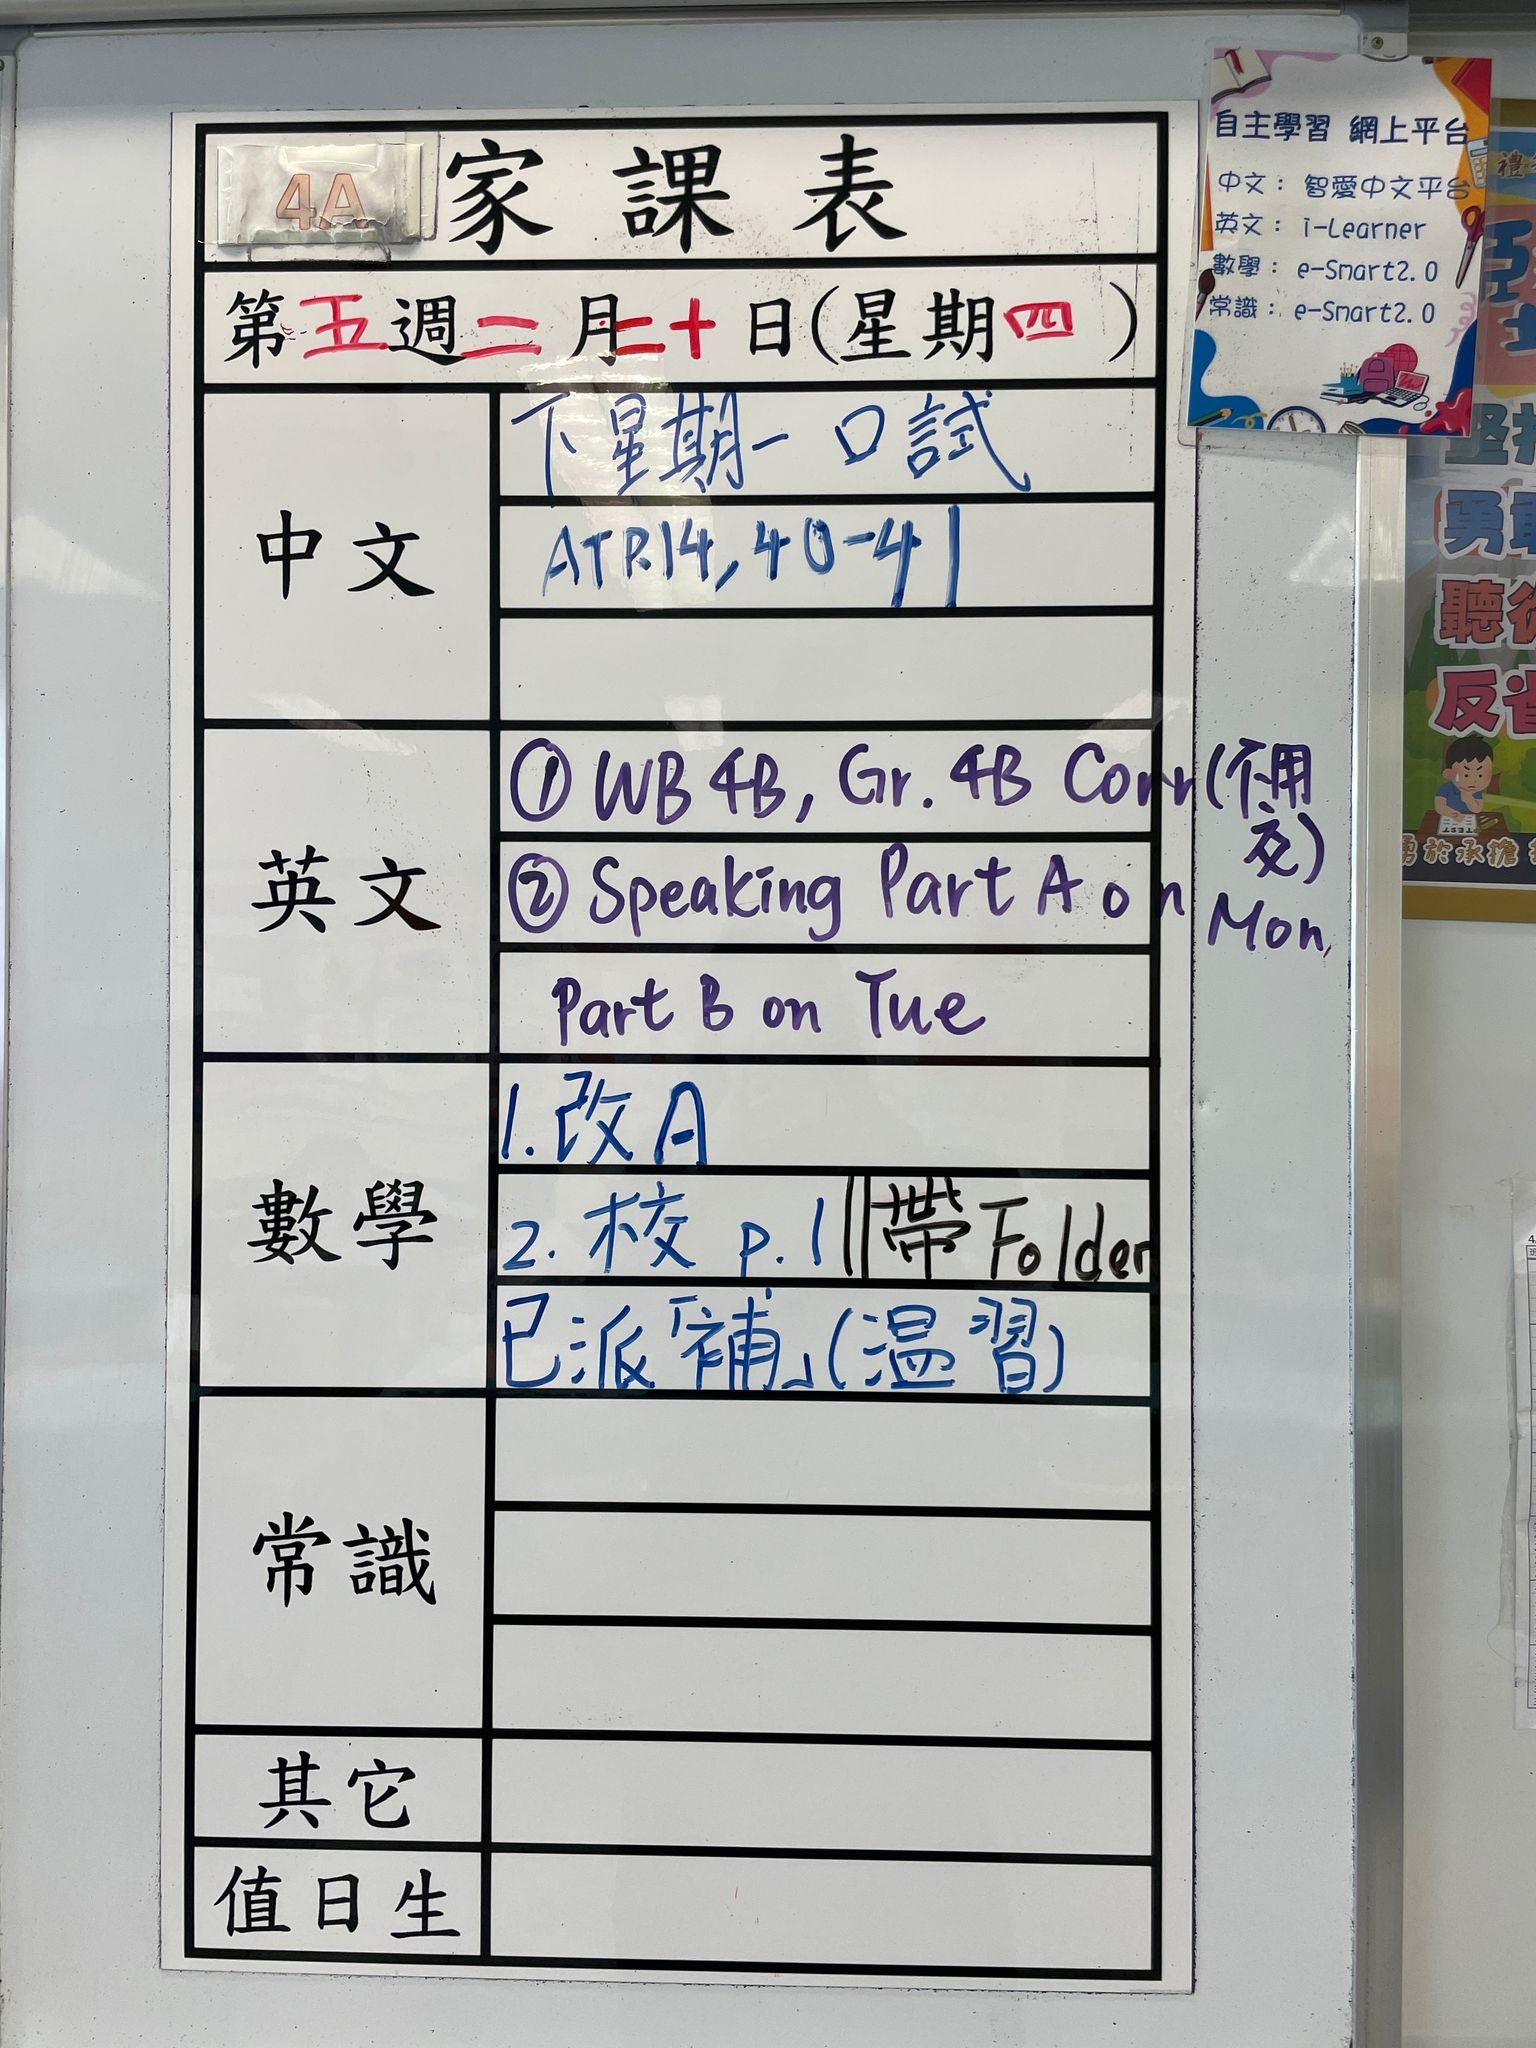 4A 家課表
第五週二月二十日(星期四)
中文
下星期一口試
ATP.14, 40-41
英文
① WB 4B, Gr. 4B Corr (不用交)
② Speaking Part A on Mon,
Part B on Tue
數學
1. 改A
2. 校 p.1 || 帶 Folder
已派「補」(温習)
常識
其它
值日生
自主學習 網上平台
中文： 智愛中文平台
英文： i-Learner
數學： e-Smart2.0
常識： e-Smart2.0